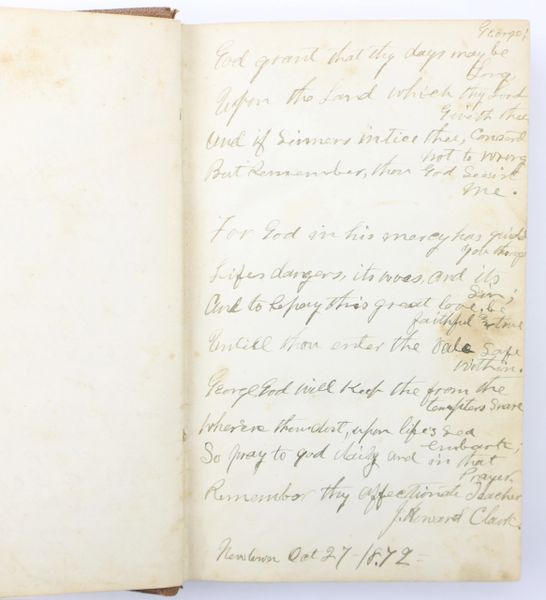 George;
God grant that thy days may be
long
Upon the Land which thy Lord
Giveth thee
And if Sinners intice thee, Consent
not to wrong
But Remember, thou God Seeist
me.
For God in his mercy has guided
you through
Lifes dangers, its woes, and its
Sin;
And to Repay this great love, be
faithful & true
Untill thou enter the Vale Safe
within.
George God will Keep the from the
tempters Snare
Where'ere thou dost, upon life's Sea
embark;
So pray to god daily and in that
Prayer,
Remember thy affectionate Teacher
J. Howard Clark.
Newtown Oct 27 - 1872 -